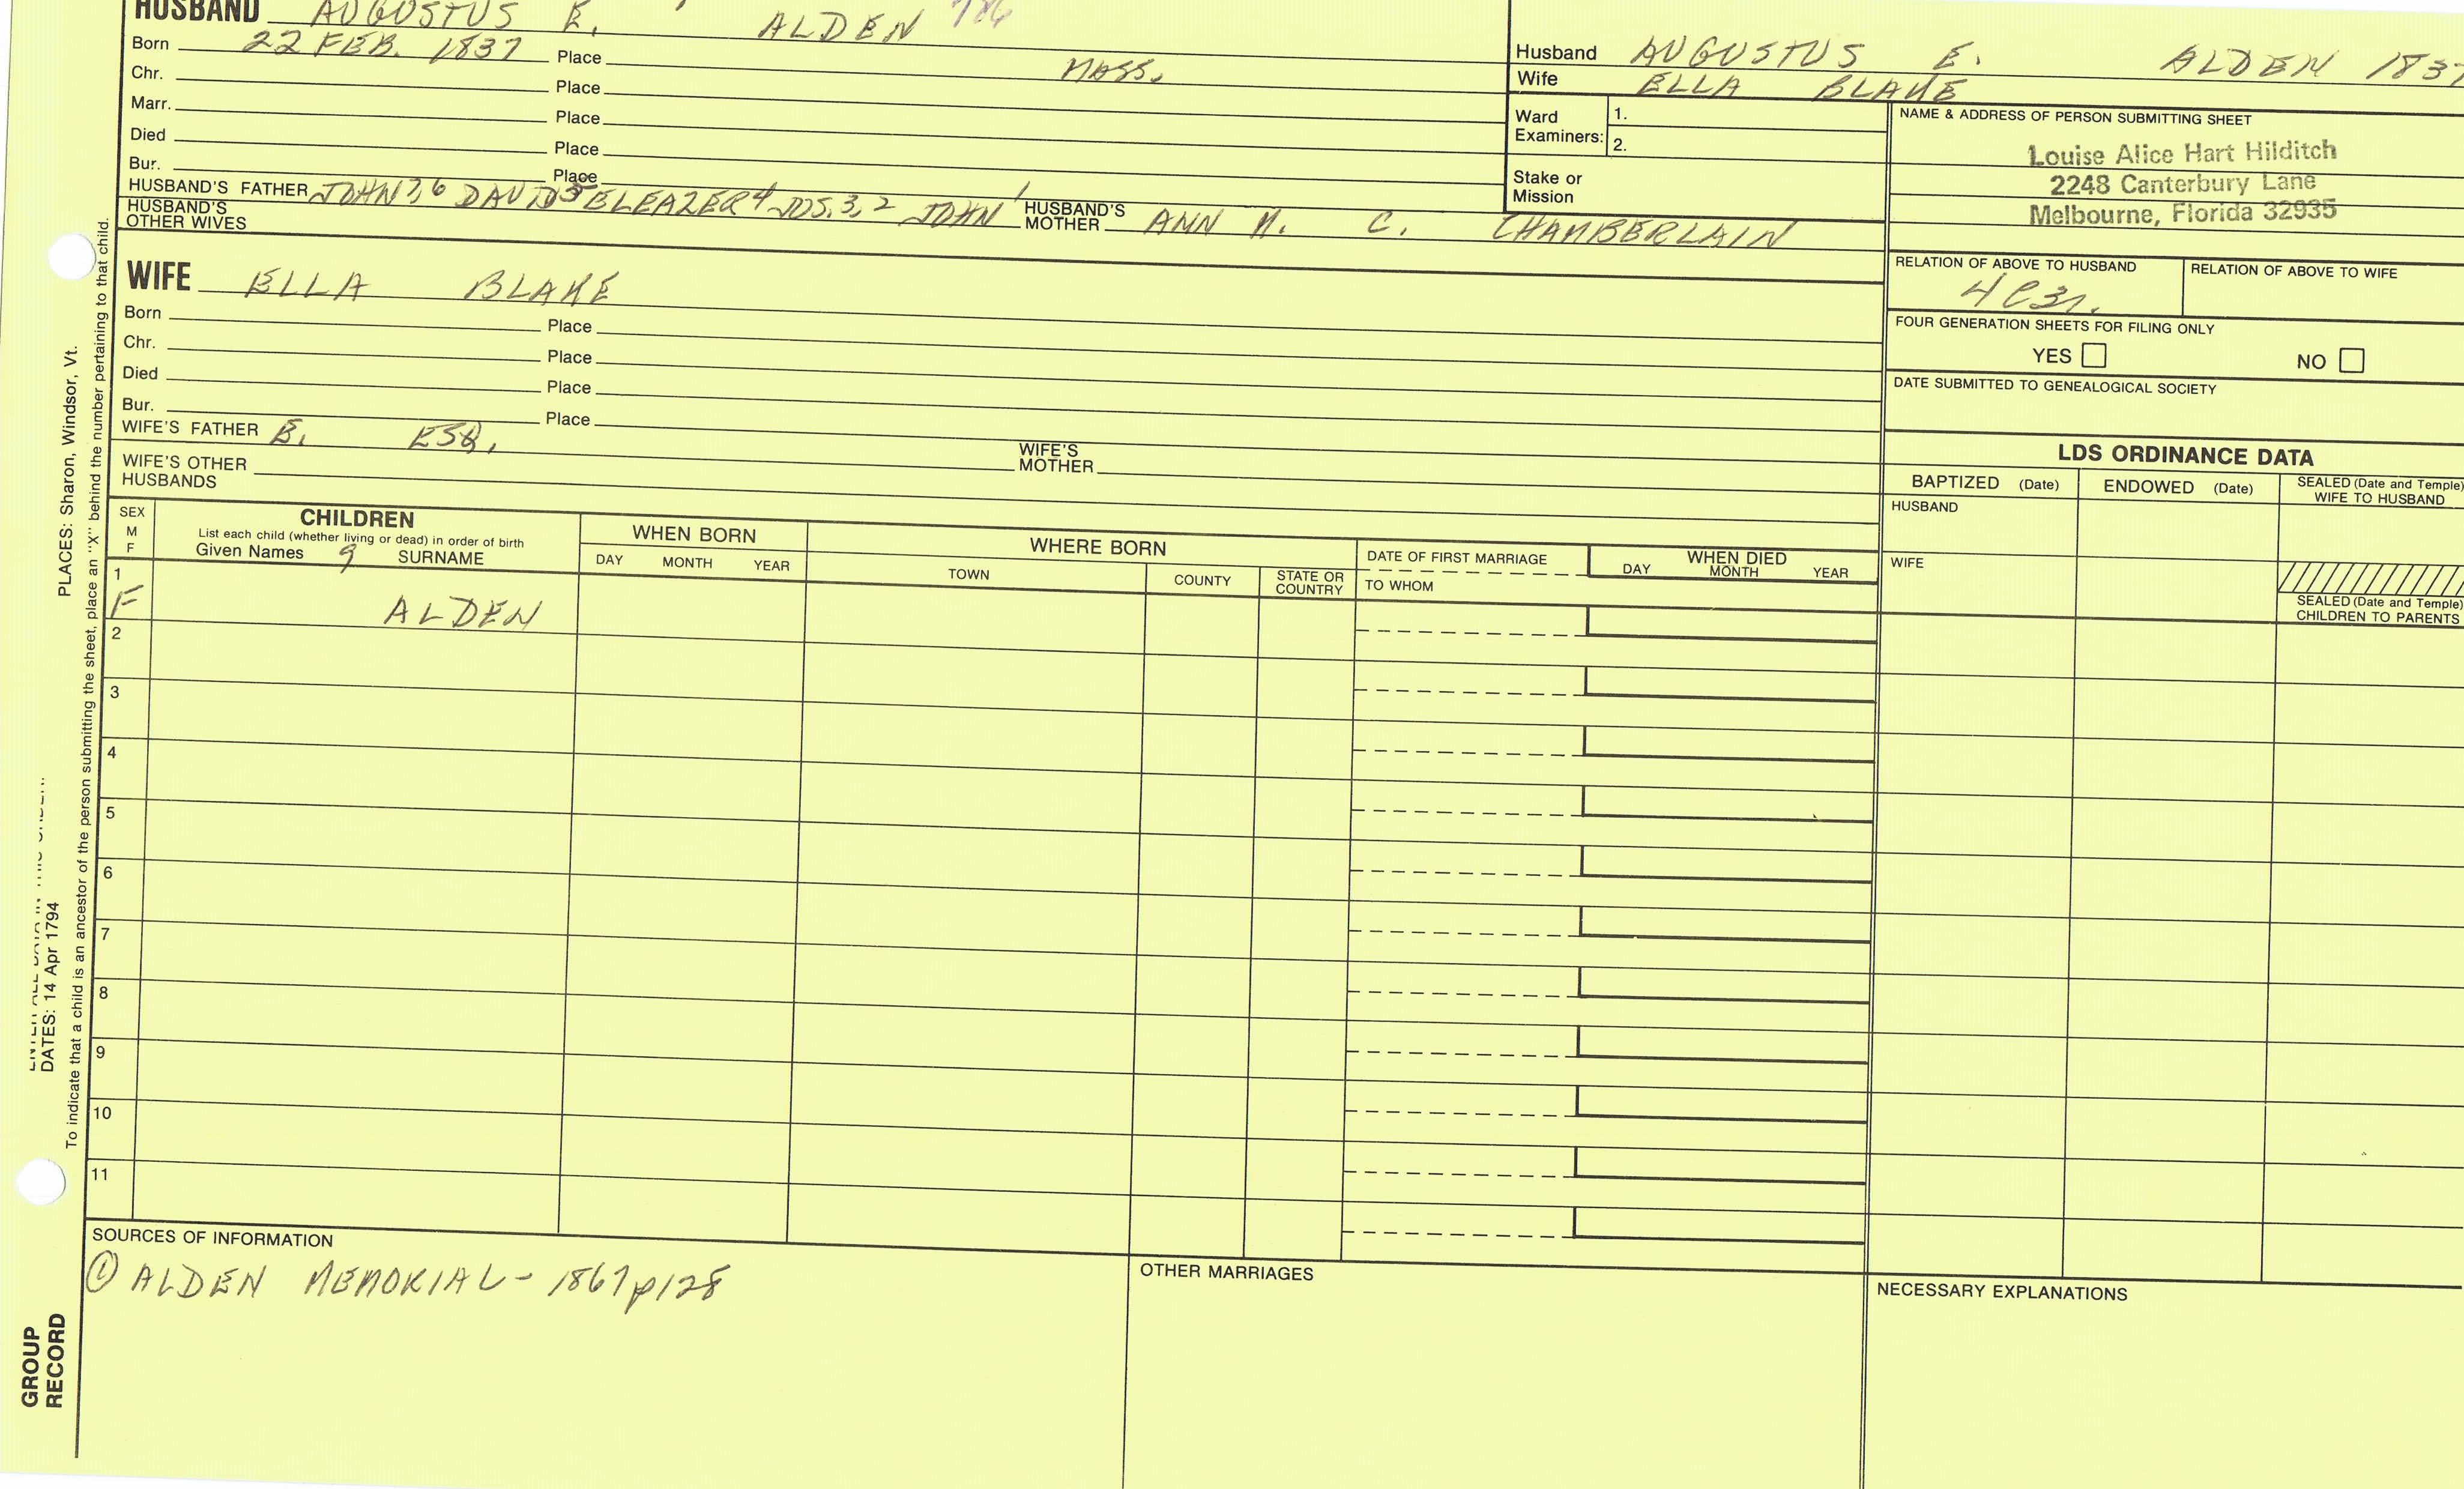 HUSBAND AUGUSTUS E. ALDEN 786
Born 22 FEB. 1837 Place MASS.
Chr. Place
Marr. Place
Died Place
Bur. Place
HUSBAND'S FATHER JOHN 7,6 DAVID 5 ELEAZER 4 JOS. 3,2 JOHN 1 HUSBAND'S MOTHER ANN M. C. CHAMBERLAIN
HUSBAND'S OTHER WIVES
WIFE ELLA BLAKE
Born Place
Chr. Place
Died Place
Bur. Place
WIFE'S FATHER E. ESQ. WIFE'S MOTHER
WIFE'S OTHER HUSBANDS
Husband AUGUSTUS E. ALDEN 1837
Wife ELLA BLAKE
Ward Examiners: 1.
2.
Stake or Mission
NAME & ADDRESS OF PERSON SUBMITTING SHEET
Louise Alice Hart Hilditch
2248 Canterbury Lane
Melbourne, Florida 32935
RELATION OF ABOVE TO HUSBAND RELATION OF ABOVE TO WIFE
4C3r.
FOUR GENERATION SHEETS FOR FILING ONLY
YES NO
DATE SUBMITTED TO GENEALOGICAL SOCIETY
LDS ORDINANCE DATA
BAPTIZED (Date) ENDOWED (Date) SEALED (Date and Temple) WIFE TO HUSBAND
HUSBAND
WIFE
SEALED (Date and Temple) CHILDREN TO PARENTS
SEX M F
CHILDREN
List each child (whether living or dead) in order of birth
Given Names 9 SURNAME
WHEN BORN
DAY MONTH YEAR
WHERE BORN
TOWN COUNTY STATE OR COUNTRY
DATE OF FIRST MARRIAGE
TO WHOM
WHEN DIED
DAY MONTH YEAR
1
F ALDEN
2
3
4
5
6
7
8
9
10
11
SOURCES OF INFORMATION
① ALDEN MEMORIAL - 1867 p128
OTHER MARRIAGES
NECESSARY EXPLANATIONS
PLACES: Sharon, Windsor, Vt.
DATES: 14 Apr 1794
To indicate that a child is an ancestor of the person submitting the sheet, place an "X" behind the number pertaining to that child.
GROUP
RECORD